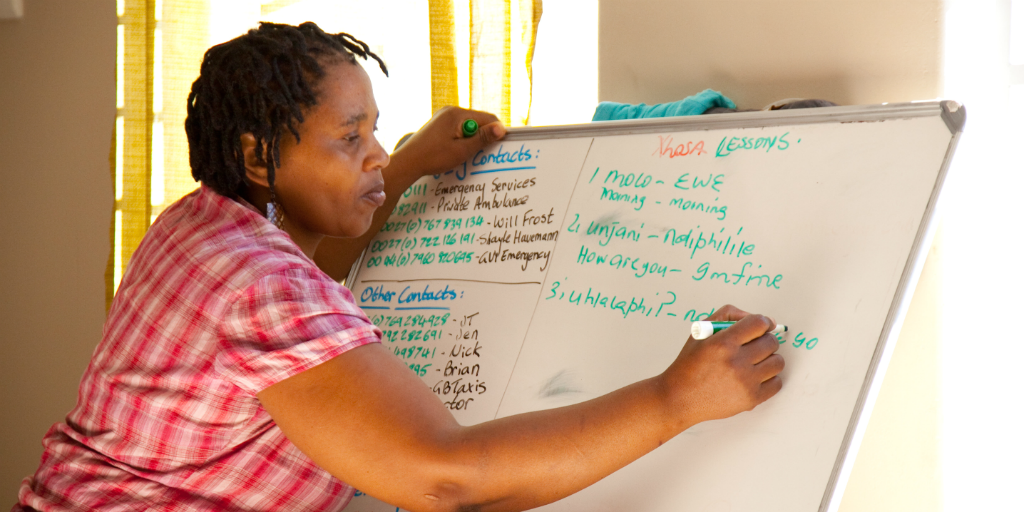 Contacts:
0111 - Emergency Services
082911 - Private Ambulance
0027(0) 767 839 134 - Will Frost
0027(0) 722 126 191 - Shayle Havemann
0044(0) 7960 820695 - GVI Emergency
Other Contacts:
769284928 - JT
792282691 - Jen
498741 - Nick
95 - Brian
GBTaxis
ctor
Xhosa LESSONS.
1 molo - EWE
Morning - morning
2, unjani - ndiphilile
How are you - I'm fine
3, uhlalaphi? -
go